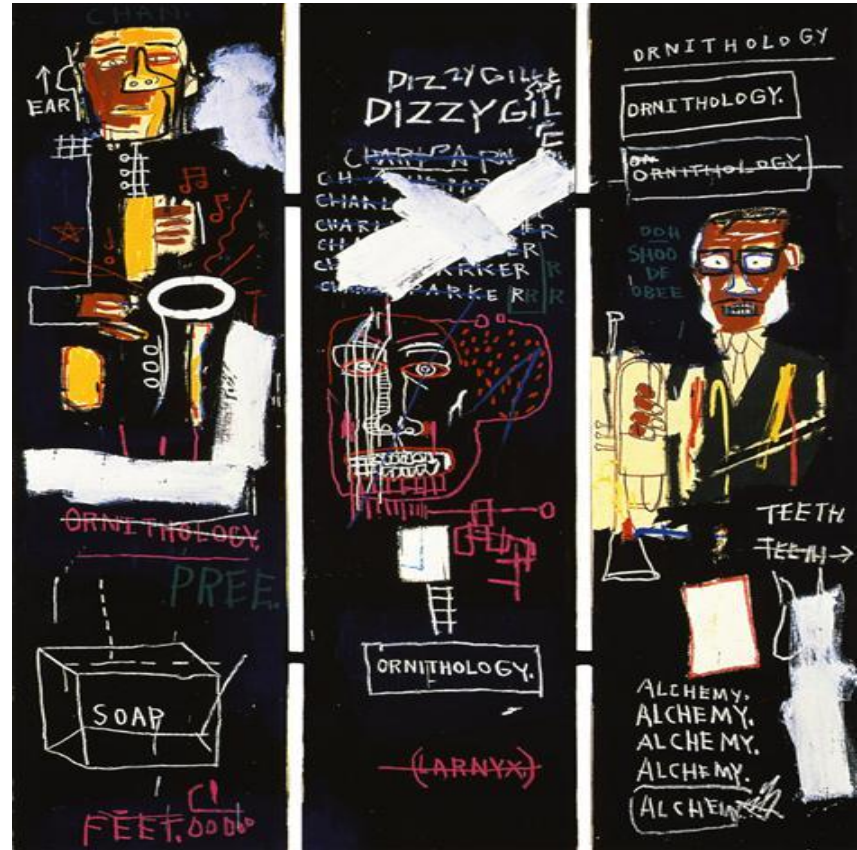 CHAN.
EAR
ORNITHOLOGY.
PREE.
SOAP
FEET.
DIZZYGILLE
SPI
DIZZYGIL
CHARLE
PARKER
PARKER
ORNITHOLOGY.
(LARNYX.)
ORNITHOLOGY
ORNITHOLOGY.
ORNITHOLOGY.
OOH
SHOO
DE
OBEE
TEETH
TEETH
ALCHEMY.
ALCHEMY.
ALCHEMY.
ALCHEMY.